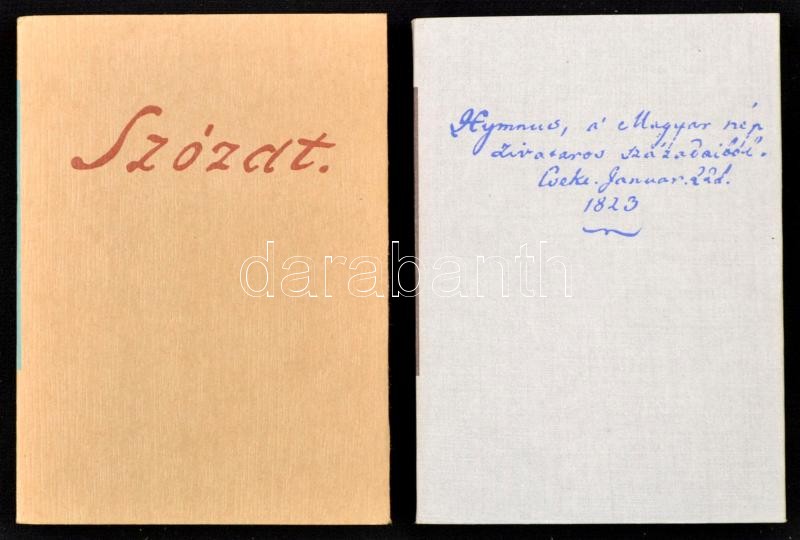 Szózat.
Hymnus, a' Magyar nép
zivataros századaiból.
Cseke. Januar. 22d.
1823
darabanth